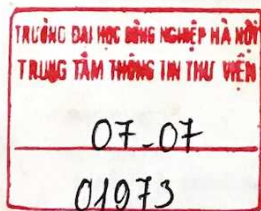 TRƯỜNG ĐẠI HỌC CÔNG NGHIỆP HÀ NỘI
TRUNG TÂM THÔNG TIN THƯ VIỆN
07-07
01973